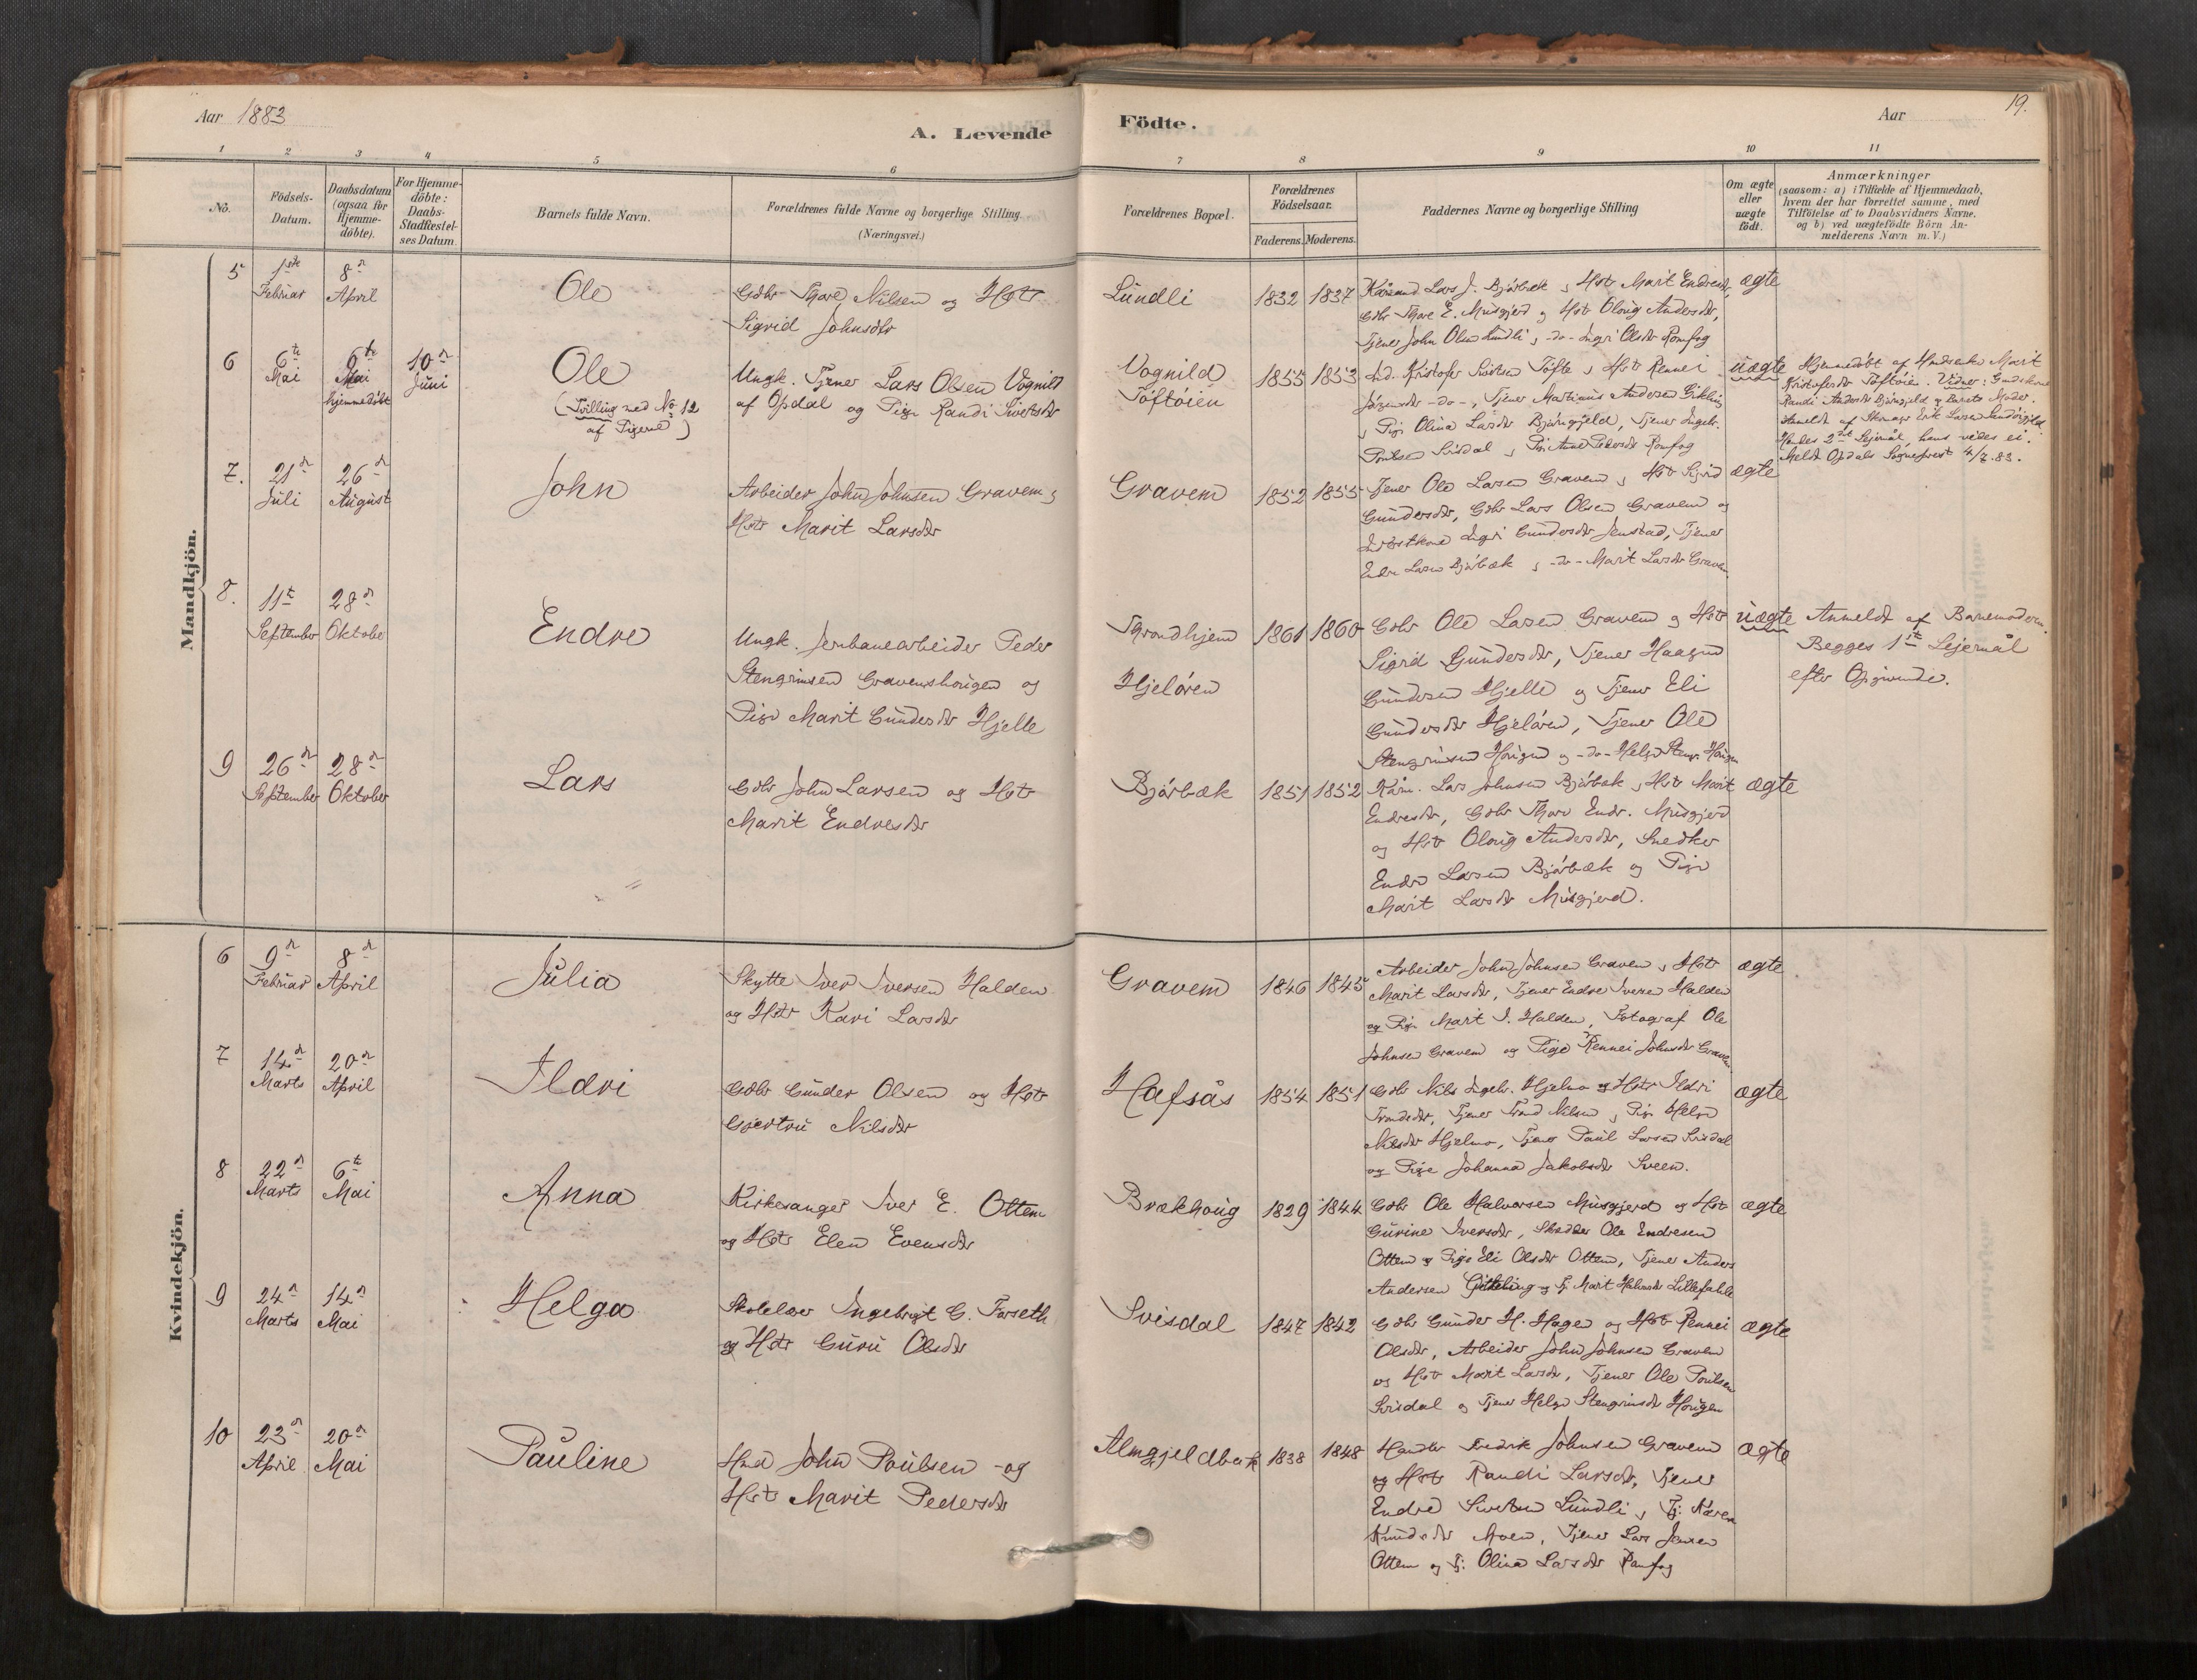 Aar 1883
A. Levende Födte.
Aar
19.
1 2 3 4 5 6 7 8 9 10 11
No.
Födsels-
Datum.
Daabsdatum
(ogsaa for
Hjemme-
döbte).
For Hjemme-
döbte:
Daabs-
Stadfæstel-
ses Datum.
Barnets fulde Navn.
Forældrenes fulde Navne og borgerlige Stilling.
(Næringsvei.)
Forældrenes Bopæl.
Forældrenes
Födselsaar.
Faderens. Moderens.
Faddernes Navne og borgerlige Stilling
Om ægte
eller
uægte
födt.
Anmærkninger
(saasom: a) i Tilfælde af Hjemmedaab,
hvem der har forrettet samme, med
Tilföielse af to Daabsvidners Navne.
og b) ved uægtefödte Börn An-
melderens Navn m. V.)
Mandkjön.
5
1ste
Februar
8de
April
Ole
Gdbr Thore Nilsen og Hstr
Sigrid Johnsdtr
Lundli
1832 1837
Kaarmand Lars J. Bjørbæk, Hstr Marit Endresdr,
Gdbr Thore E. Musgjerd og Hstr Olaug Andersdr,
Tjener John Olsen Lundli, -do- Ingri Olsdr Romfog
ægte
6
6te
Mai
6te
Mai
hjemmedøbt
10de
Juni
Ole
(Tvilling med No 12
af Pigerne)
Ungk. Tjener Lars Olsen Vognild
af Opdal og Pige Randi Sivertsdr
Vognild
Toftøien
1855 1853
Ind. Kristofer Sivertsen Tøfte, Hstr Rennei
Jørgensdr -do-, Tjener Martinus Andersen Gikling
, Pige Olina Larsdr Bjørngjeld, Tjener Ingebr.
Poulsen Svisdal, Pige Ane Pedersdr Romfog
uægte
Hjemmedøbt af Marit
Kristofersdr Toftøien. Vidner:
Randi Andersdr Bjørngjeld og Barnets Moder.
Anmeldt af Erik Larsen
Hendes 2det Lejermål, hans vides ei.
Meldt Opdals Sognepræst 4/7.83.
7.
21de
Juli
26de
August
John
Arbeider John Johnsen Gravem,
Hstr Marit Larsdr
Gravem
1852 1855
Tjener Ole Larsen Gravem, Hstr Sigrid
Gundersdr, Gdbr Lars Olsen Gravem og
Ingri Gundersdr Jenstad, Tjener
Endre Larsen Bjørbæk, -do- Marit Larsdr Gravem.
ægte
8.
11te
September
28de
Oktober
Endre
Ungk. Jernbanearbeider Peder
Stengrimsen Gravemshougen og
Pige Marit Gundersdr Hjelle
Throndhjem
Hjeløren
1861 1860
Gdbr Ole Larsen Gravem, Hstr
Sigrid Gundersdr, Tjener Haagen
Gundersen Hjelle og Tjener Eli
Gundersdr Hjeløren, Tjener Ole
Stengrimsen Hougen, -do- Helga Stengr. Hougen
uægte
Anmeldt af Barnemoderen.
Begges 1ste Lejermål
efter Opgivende.
9
26de
September
28de
Oktober
Lars
Gdbr John Larsen og Hstr
Marit Endresdr
Bjørbæk
1851 1852
Kårm. Lars Johnsen Bjørbæk, Hstr Marit
Endresdr, Gdbr Thore Endr. Musgjerd
og Hstr Olaug Andersdr, Snedker
Endre Larsen Bjørbæk og Pige
Marit Larsdr Musgjerd.
ægte
Kvindekjön.
6
9de
Februar
8de
April
Julia
Skytte Iver Iversen Halden
og Hstr Kari Larsdr
Gravem
1846 1845
Arbeider John Johnsen Gravem, Hstr
Marit Larsdr, Tjener Endre Iversen Halden
og Pige Marit I. Halden, Fotograf Ole
Johnsen Gravem og Pige Rennei Johnsdr Gravem
ægte
7
14de
Marts
20de
April
Ildri
Gdbr Gunder Olsen og Hstr
Gjertru Nilsdr
Hafsås
1854 1851
Gdbr Nils Ingebr. Hjelmo og Hstr Ildri
Trondsdr, Tjener Trond Nilsen, Pige Helga
Nilsdr Hjelmo, Tjener Paul Larsen Svisdal
og Pige Johanna Jakobsdr Sveen.
ægte
8
22de
Marts
6te
Mai
Anna
Kirkesanger Iver E. Ottem
og Hstr Elen Evensdr
Brækhoug
1829 1844
Gdbr Ole Halvorsen Musgjerd og Hstr
Gurine Iversdr, Skrædder Ole Endresen
Ottem og Pige Eli Olsdr Ottem, Tjener Anders
Andersen Gikling og Pj Marit Halvorsdr Lillefahle
ægte
9
24de
Marts
14de
Mai
Helga
Skolelærer Ingebrigt G. Forseth
og Hstr Guru Olsdr
Svisdal
1847 1842
Gdbr Gunder H. Hagen og Hstr Rennei
Olsdr, Arbeider John Johnsen Gravem
og Hstr Marit Larsdr, Tjener Ole Poulsen
Svisdal og Tjener Helga Stengrimsdr Hougen
ægte
10
23de
April
20de
Mai
Pauline
Hmd John Poulsen og
Hstr Marit Pedersdr
Almgjeldbæk
1838 1848
Handler Fredrik Johnsen Gravem
og Hstr Randi Larsdr, Tjener
Endre Sivertsen Lundli, Pj: Karen
Knudsdr Moen, Tjener Lars Jensen
Ottem og Pj: Olina Larsdr Romfog
ægte